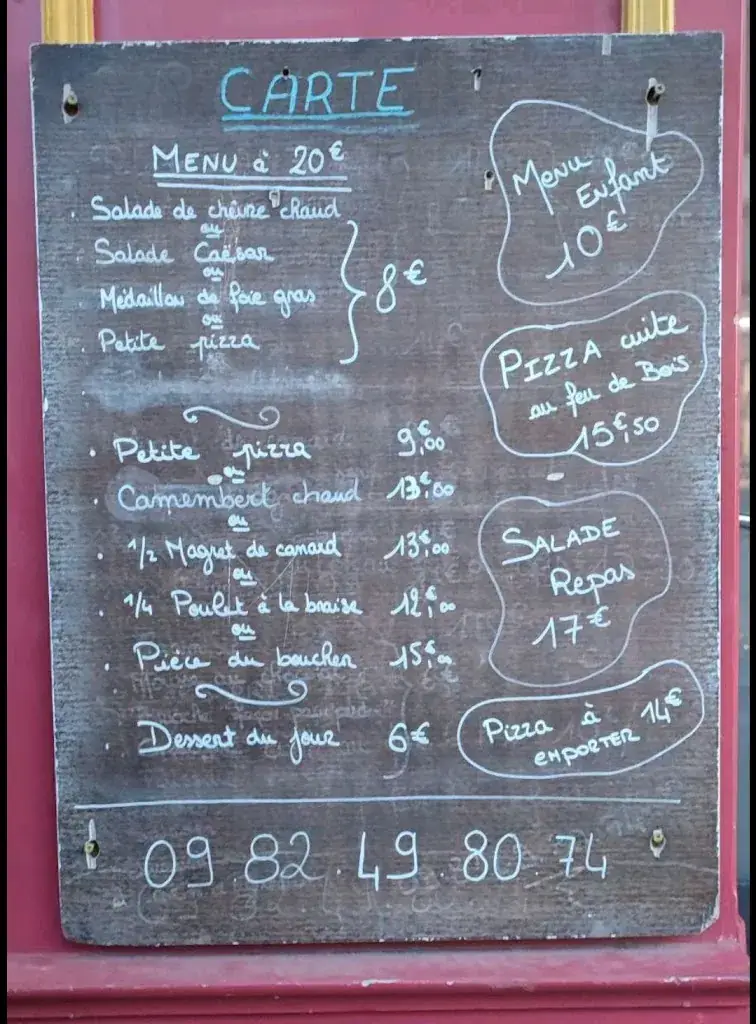 CARTE
MENU à 20€
. Salade de chèvre chaud
ou
. Salade Caesar
ou
. Médaillon de foie gras
ou
. Petite pizza
8€
. Petite pizza 9€,00
ou
. Camembert chaud 13€,00
ou
. 1/2 Magret de canard 13€,00
ou
. 1/4 Poulet à la braise 12€,00
ou
. Pièce du boucher 15€,00
. Dessert du jour 6€
Menu
Enfant
10€
PIZZA cuite
au feu de Bois
15€,50
SALADE
Repas
17€
Pizza à 14€
EMPORTER
09.82.49.80.74